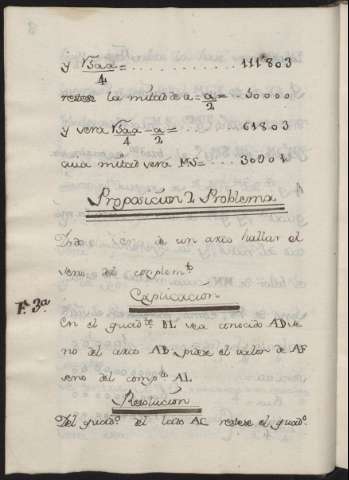 y √5aa/4 = . . . . . . . . . . . . 111803
restese la mitad de a - a/2 = . . 50000
y vera √5aa/4 - a/2 = . . . . . . 61803
cuia mitad vera MS = . . . 30901
Proposicion 2 Problema
de un arco hallar el
seno del complemto
Explicacion
Fa. 3a.
En el quadte BL sea conocido AD se
no del arco AB pidese el valor de AF
seno del compto AL.
Resolucion
Del quado. del lado AC restese el quado.